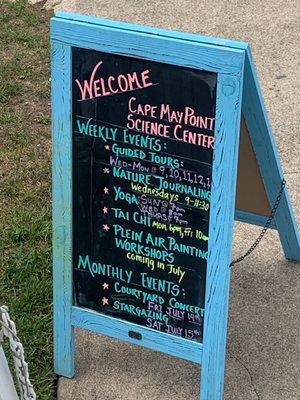 WELCOME
CAPE MAY POINT
SCIENCE CENTER
WEEKLY EVENTS:
★ GUIDED TOURS:
WED-MON @ 9,10,11,12,1
★ NATURE JOURNALING
Wednesdays 9-11:30
★ YOGA
★ TAI CHI
★ PLEIN AIR PAINTING
WORKSHOPS
coming in July
MONTHLY EVENTS:
★ COURTYARD CONCERT
FRI JULY 19TH
★ STARGAZING
SAT JULY 15TH